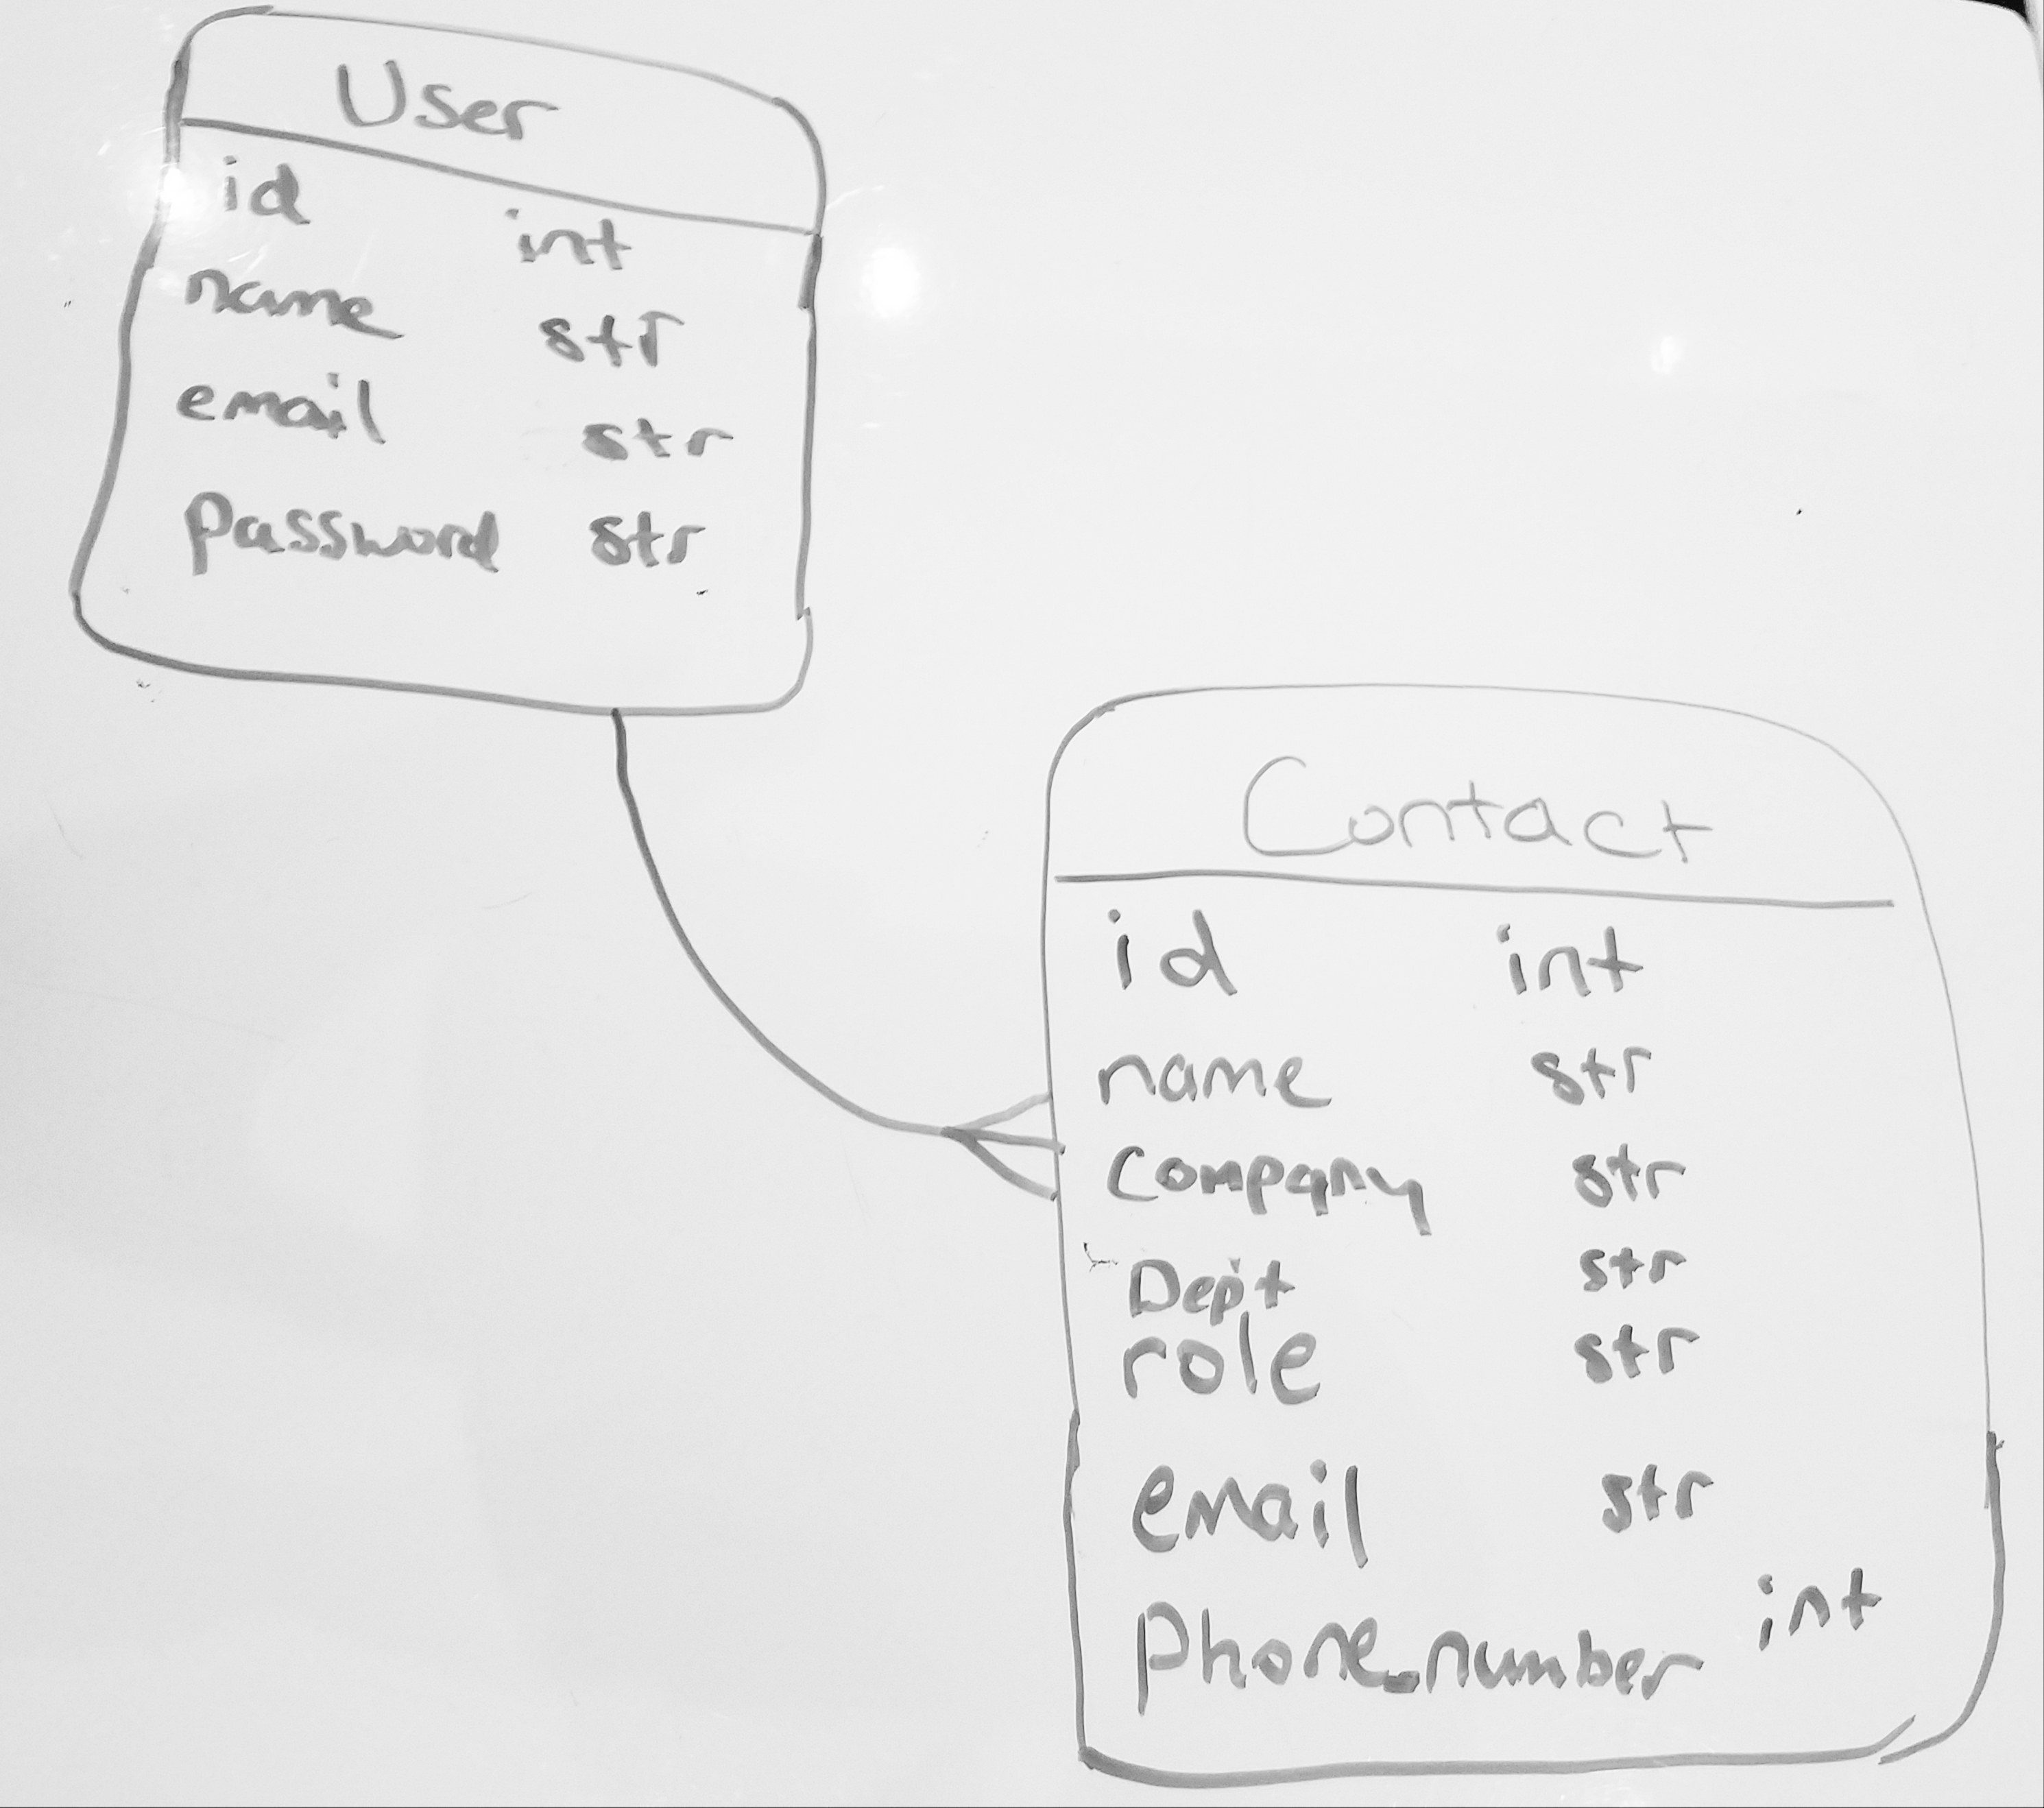 User
id int
name str
email str
password str
Contact
id int
name str
Company str
Dept str
role str
email str
phone_number int